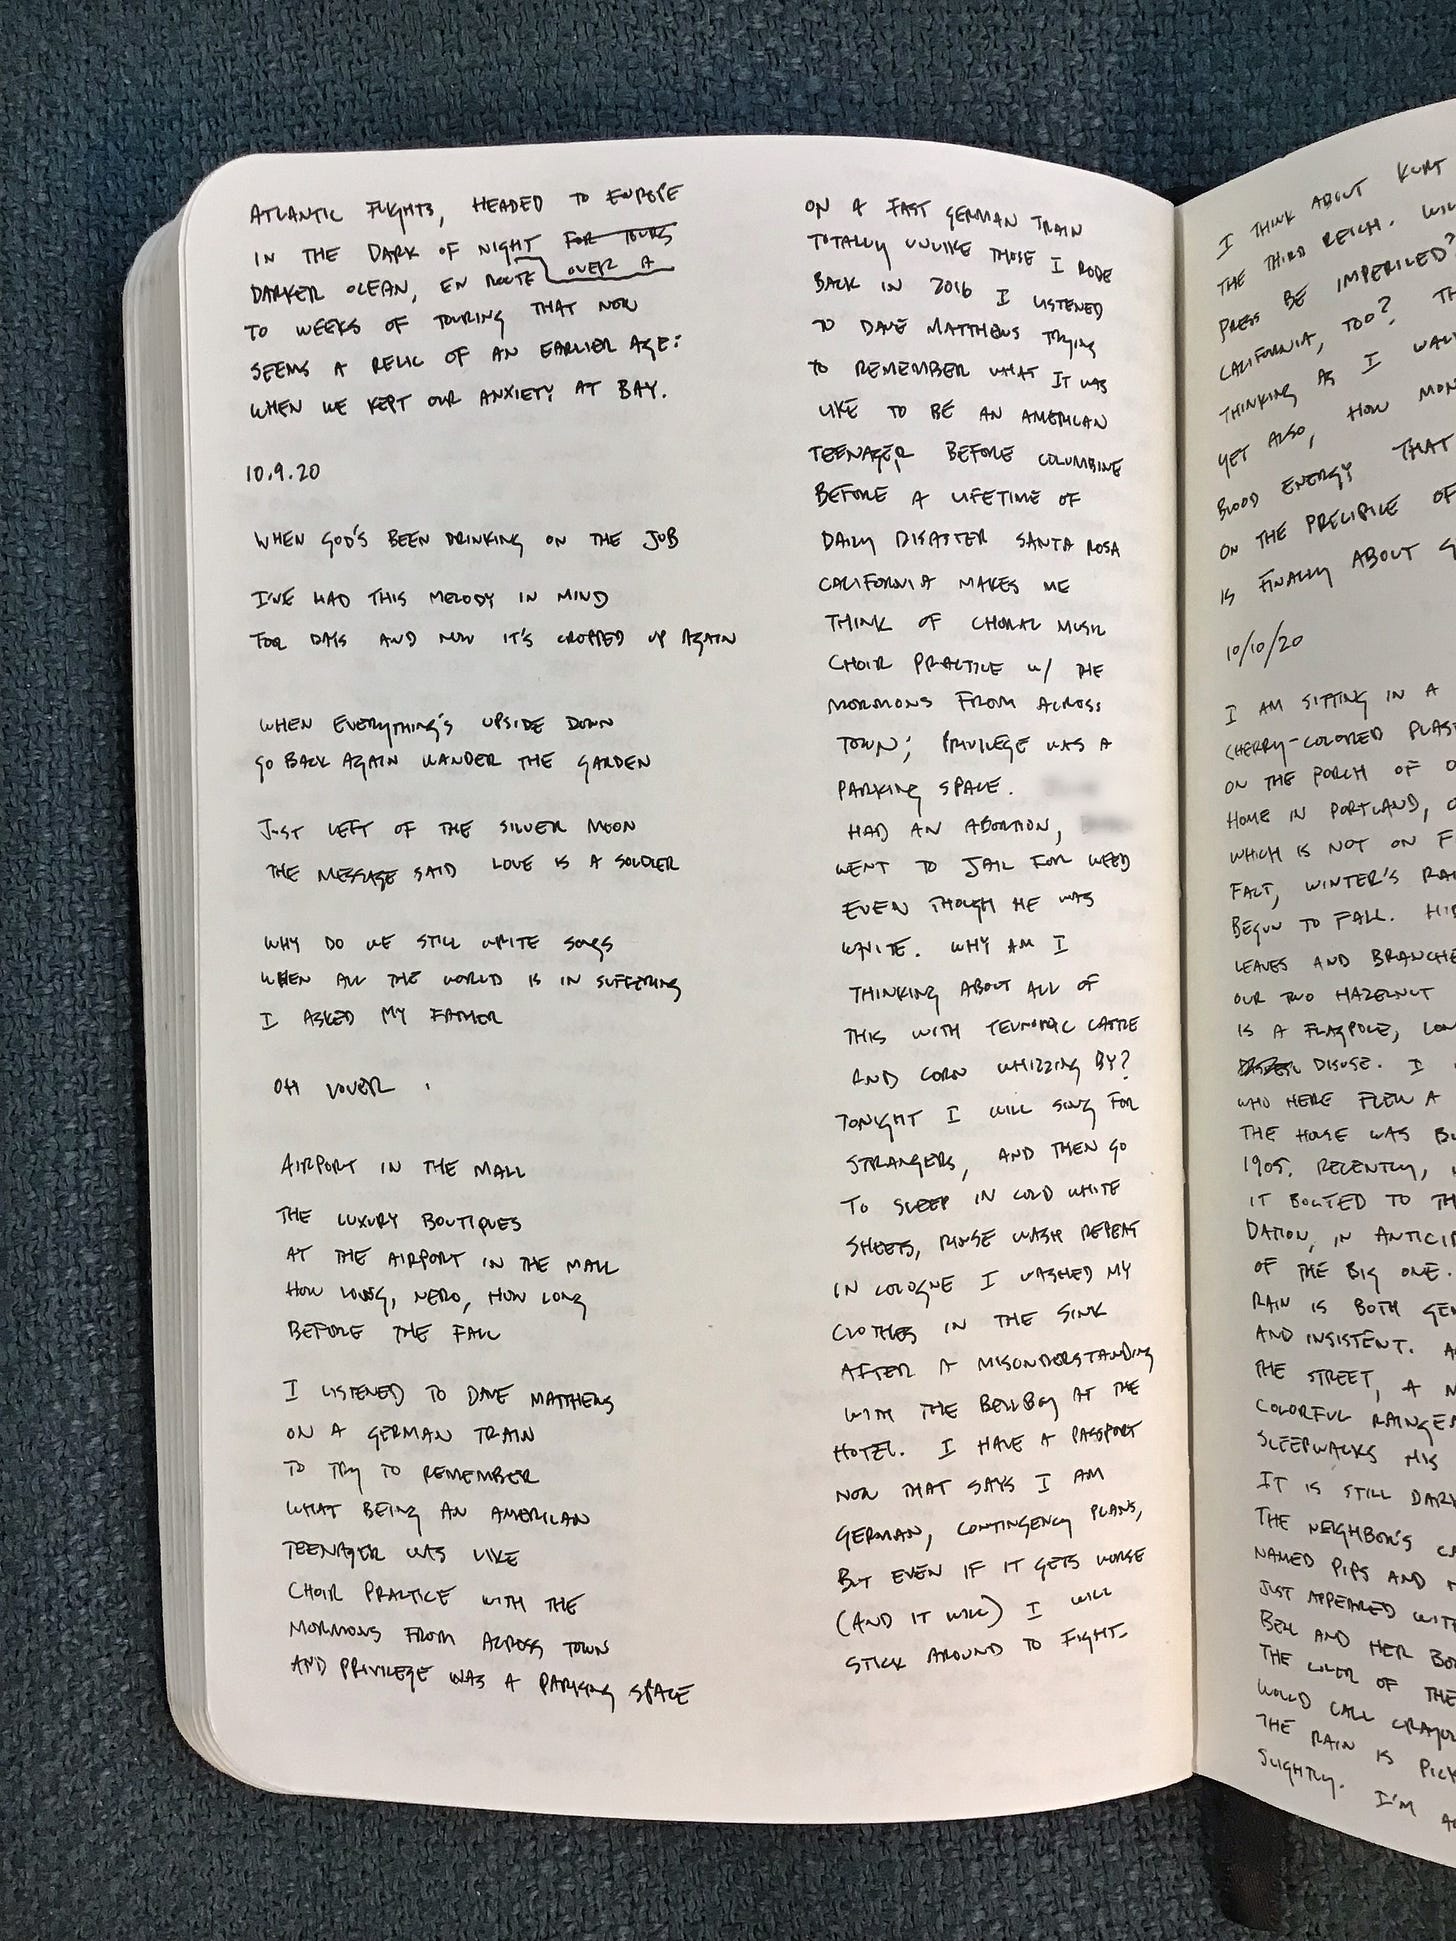 ATLANTIC FLIGHTS, HEADED TO EUROPE
IN THE DARK OF NIGHT FOR TOURS
OVER A
DARKER OCEAN, EN ROUTE
TO WEEKS OF TOURING THAT NOW
SEEMS A RELIC OF AN EARLIER AGE:
WHEN WE KEPT OUR ANXIETY AT BAY.
10.9.20
WHEN GOD'S BEEN DRINKING ON THE JOB
I'VE HAD THIS MELODY IN MIND
FOR DAYS AND NOW IT'S CROPPED UP AGAIN
WHEN EVERYTHING'S UPSIDE DOWN
GO BACK AGAIN WANDER THE GARDEN
JUST LEFT OF THE SILVER MOON
THE MESSAGE SAID LOVE IS A SOLDIER
WHY DO WE STILL WRITE SONGS
WHEN ALL THE WORLD IS IN SUFFERING
I ASKED MY FATHER
OH LOVER
AIRPORT IN THE MALL
THE LUXURY BOUTIQUES
AT THE AIRPORT IN THE MALL
HOW LONG, NERO, HOW LONG
BEFORE THE FALL
I LISTENED TO DAVE MATTHEWS
ON A GERMAN TRAIN
TO TRY TO REMEMBER
WHAT BEING AN AMERICAN
TEENAGER WAS LIKE
CHOIR PRACTICE WITH THE
MORMONS FROM ACROSS TOWN
AND PRIVILEGE WAS A PARKING SPACE
ON A FAST GERMAN TRAIN
TOTALLY UNLIKE THOSE I RODE
BACK IN 2016 I LISTENED
TO DAVE MATTHEWS TRYING
TO REMEMBER WHAT IT WAS
LIKE TO BE AN AMERICAN
TEENAGER BEFORE COLUMBINE
BEFORE A LIFETIME OF
DAILY DISASTER SANTA ROSA
CALIFORNIA MAKES ME
THINK OF CHORAL MUSIC
CHOIR PRACTICE W/ THE
MORMONS FROM ACROSS
TOWN; PRIVILEGE WAS A
PARKING SPACE.
HAD AN ABORTION,
WENT TO JAIL FOR WEED
EVEN THOUGH HE WAS
WHITE. WHY AM I
THINKING ABOUT ALL OF
THIS WITH TEUTONIC CATTLE
AND CORN WHIZZING BY?
TONIGHT I WILL SING FOR
STRANGERS, AND THEN GO
TO SLEEP IN COLD WHITE
SHEETS, RINSE WASH REPEAT
IN COLOGNE I WASHED MY
CLOTHES IN THE SINK
AFTER A MISUNDERSTANDING
WITH THE BELLBOY AT THE
HOTEL. I HAVE A PASSPORT
NOW THAT SAYS I AM
GERMAN, CONTINGENCY PLANS,
BUT EVEN IF IT GETS WORSE
(AND IT WILL) I WILL
STICK AROUND TO FIGHT.
I THINK ABOUT KURT
THE THIRD REICH. WIL
PRESS BE IMPERILED?
CALIFORNIA, TOO? TH
THINKING AS I WAL
YET ALSO, HOW MON
BLOOD ENERGY THAT
ON THE PRECIPICE OF
IS FINALLY ABOUT
10/10/20
I AM SITTING IN A
CHERRY-COLORED PLAS
ON THE PORCH OF O
HOME IN PORTLAND, O
WHICH IS NOT ON F
FACT, WINTER'S RAI
BEGUN TO FALL. HID
LEAVES AND BRANCHE
OUR TWO HAZELNUT
IS A FLAGPOLE, LON
DISUSE. I
WHO HERE FLEW A
THE HOUSE WAS BU
1905. RECENTLY,
IT BOLTED TO TH
DATION, IN ANTICIP
OF THE BIG ONE.
RAIN IS BOTH GEN
AND INSISTENT. A
THE STREET, A N
COLORFUL RAINGEA
SLEEPWALKS HIS
IT IS STILL DARK
THE NEIGHBOR'S CA
NAMED PIPS AND
JUST APPEARED WITH
BELL AND HER BO
THE COLOR OF THE
WOULD CALL CRAYO
THE RAIN IS PICK
SLIGHTLY. I'M A